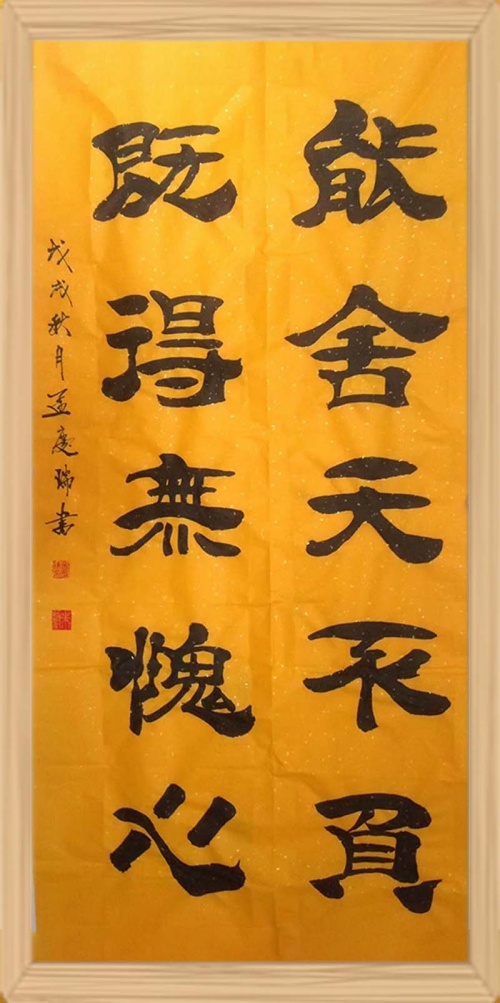 能舍天不負
既得無愧心
戊戌秋月孟慶瑞書